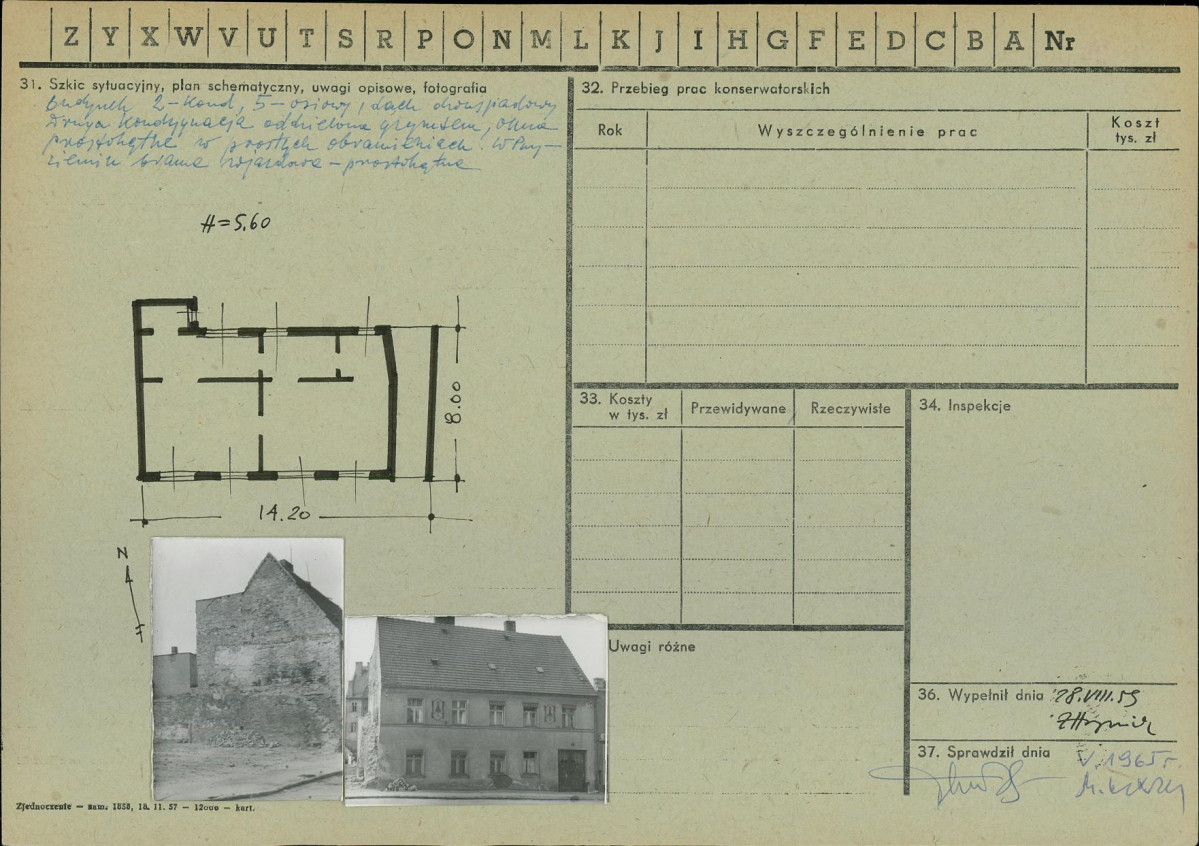 Z Y X W V U T S R P O N M L K J I H G F E D C B A Nr
31. Szkic sytuacyjny, plan schematyczny, uwagi opisowe, fotografia
Budynek 2-kond, 5-osiowy, dach dwuspadowy
Druga kondygnacja oddzielona gzymsem, okna
prostokątne w prostych obramieniach. W Przy-
ziemiu brama wjazdowa - prostokątna
H=5.60
8.00
14.20
N
32. Przebieg prac konserwatorskich
Rok
Wyszczególnienie prac
Koszt
tys. zł
33. Koszty
w tys. zł
Przewidywane
Rzeczywiste
34. Inspekcje
Uwagi różne
36. Wypełnił dnia 28.VIII.59
37. Sprawdził dnia V. 1965 r.
Zjednoczenie — zam. 1858, 18. 11. 57 — 12000 — kart.